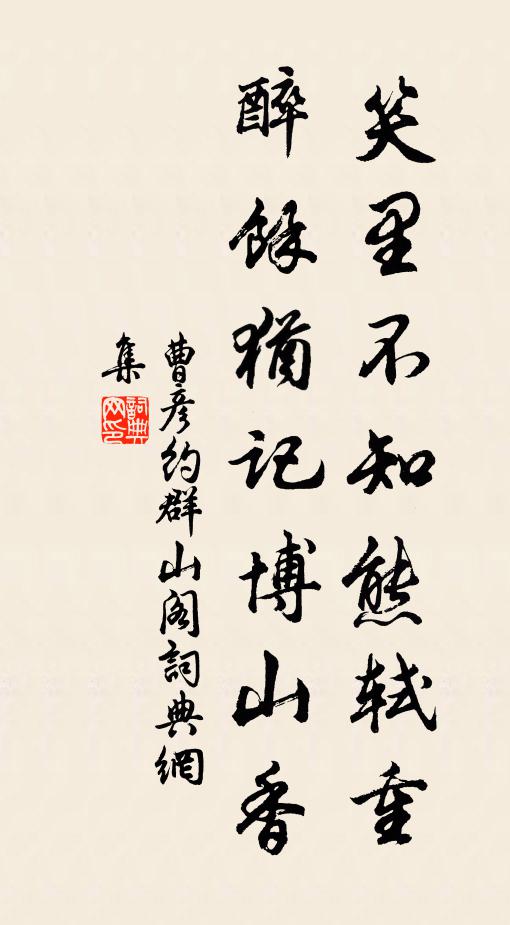 笑里不知熊轼重
醉餘猶记博山香
曹彦约群山阁詞典網
集
詞典网印